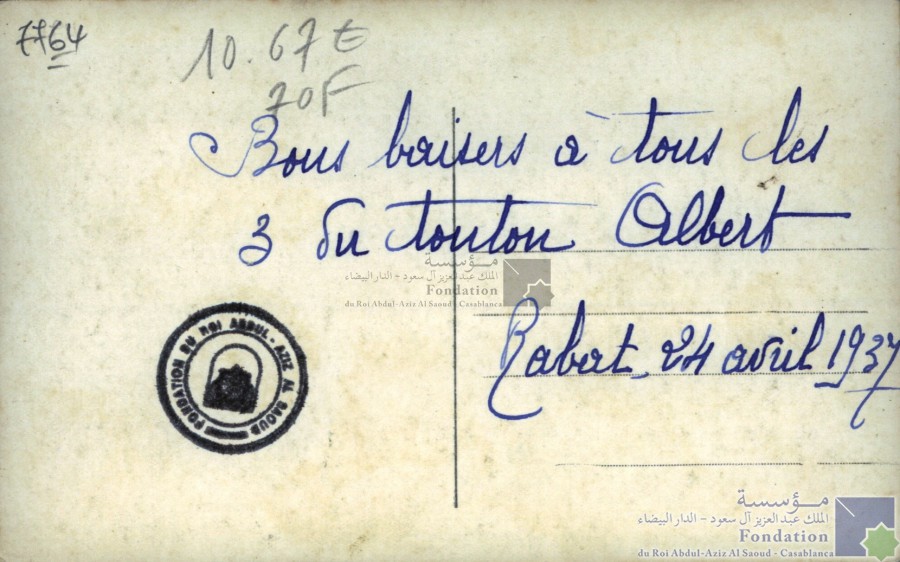 7764
10.67€
70F
Bons baisers à tous les
3 du tonton Albert
مؤسسة
الملك عبد العزيز آل سعود - الدار البيضاء
Fondation
du Roi Abdul-Aziz Al Saoud - Casablanca
FONDATION DU ROI ABDUL-AZIZ AL SAOUD
Rabat, 24 avril 1937
مؤسسة
الملك عبد العزيز آل سعود - الدار البيضاء
Fondation
du Roi Abdul-Aziz Al Saoud - Casablanca